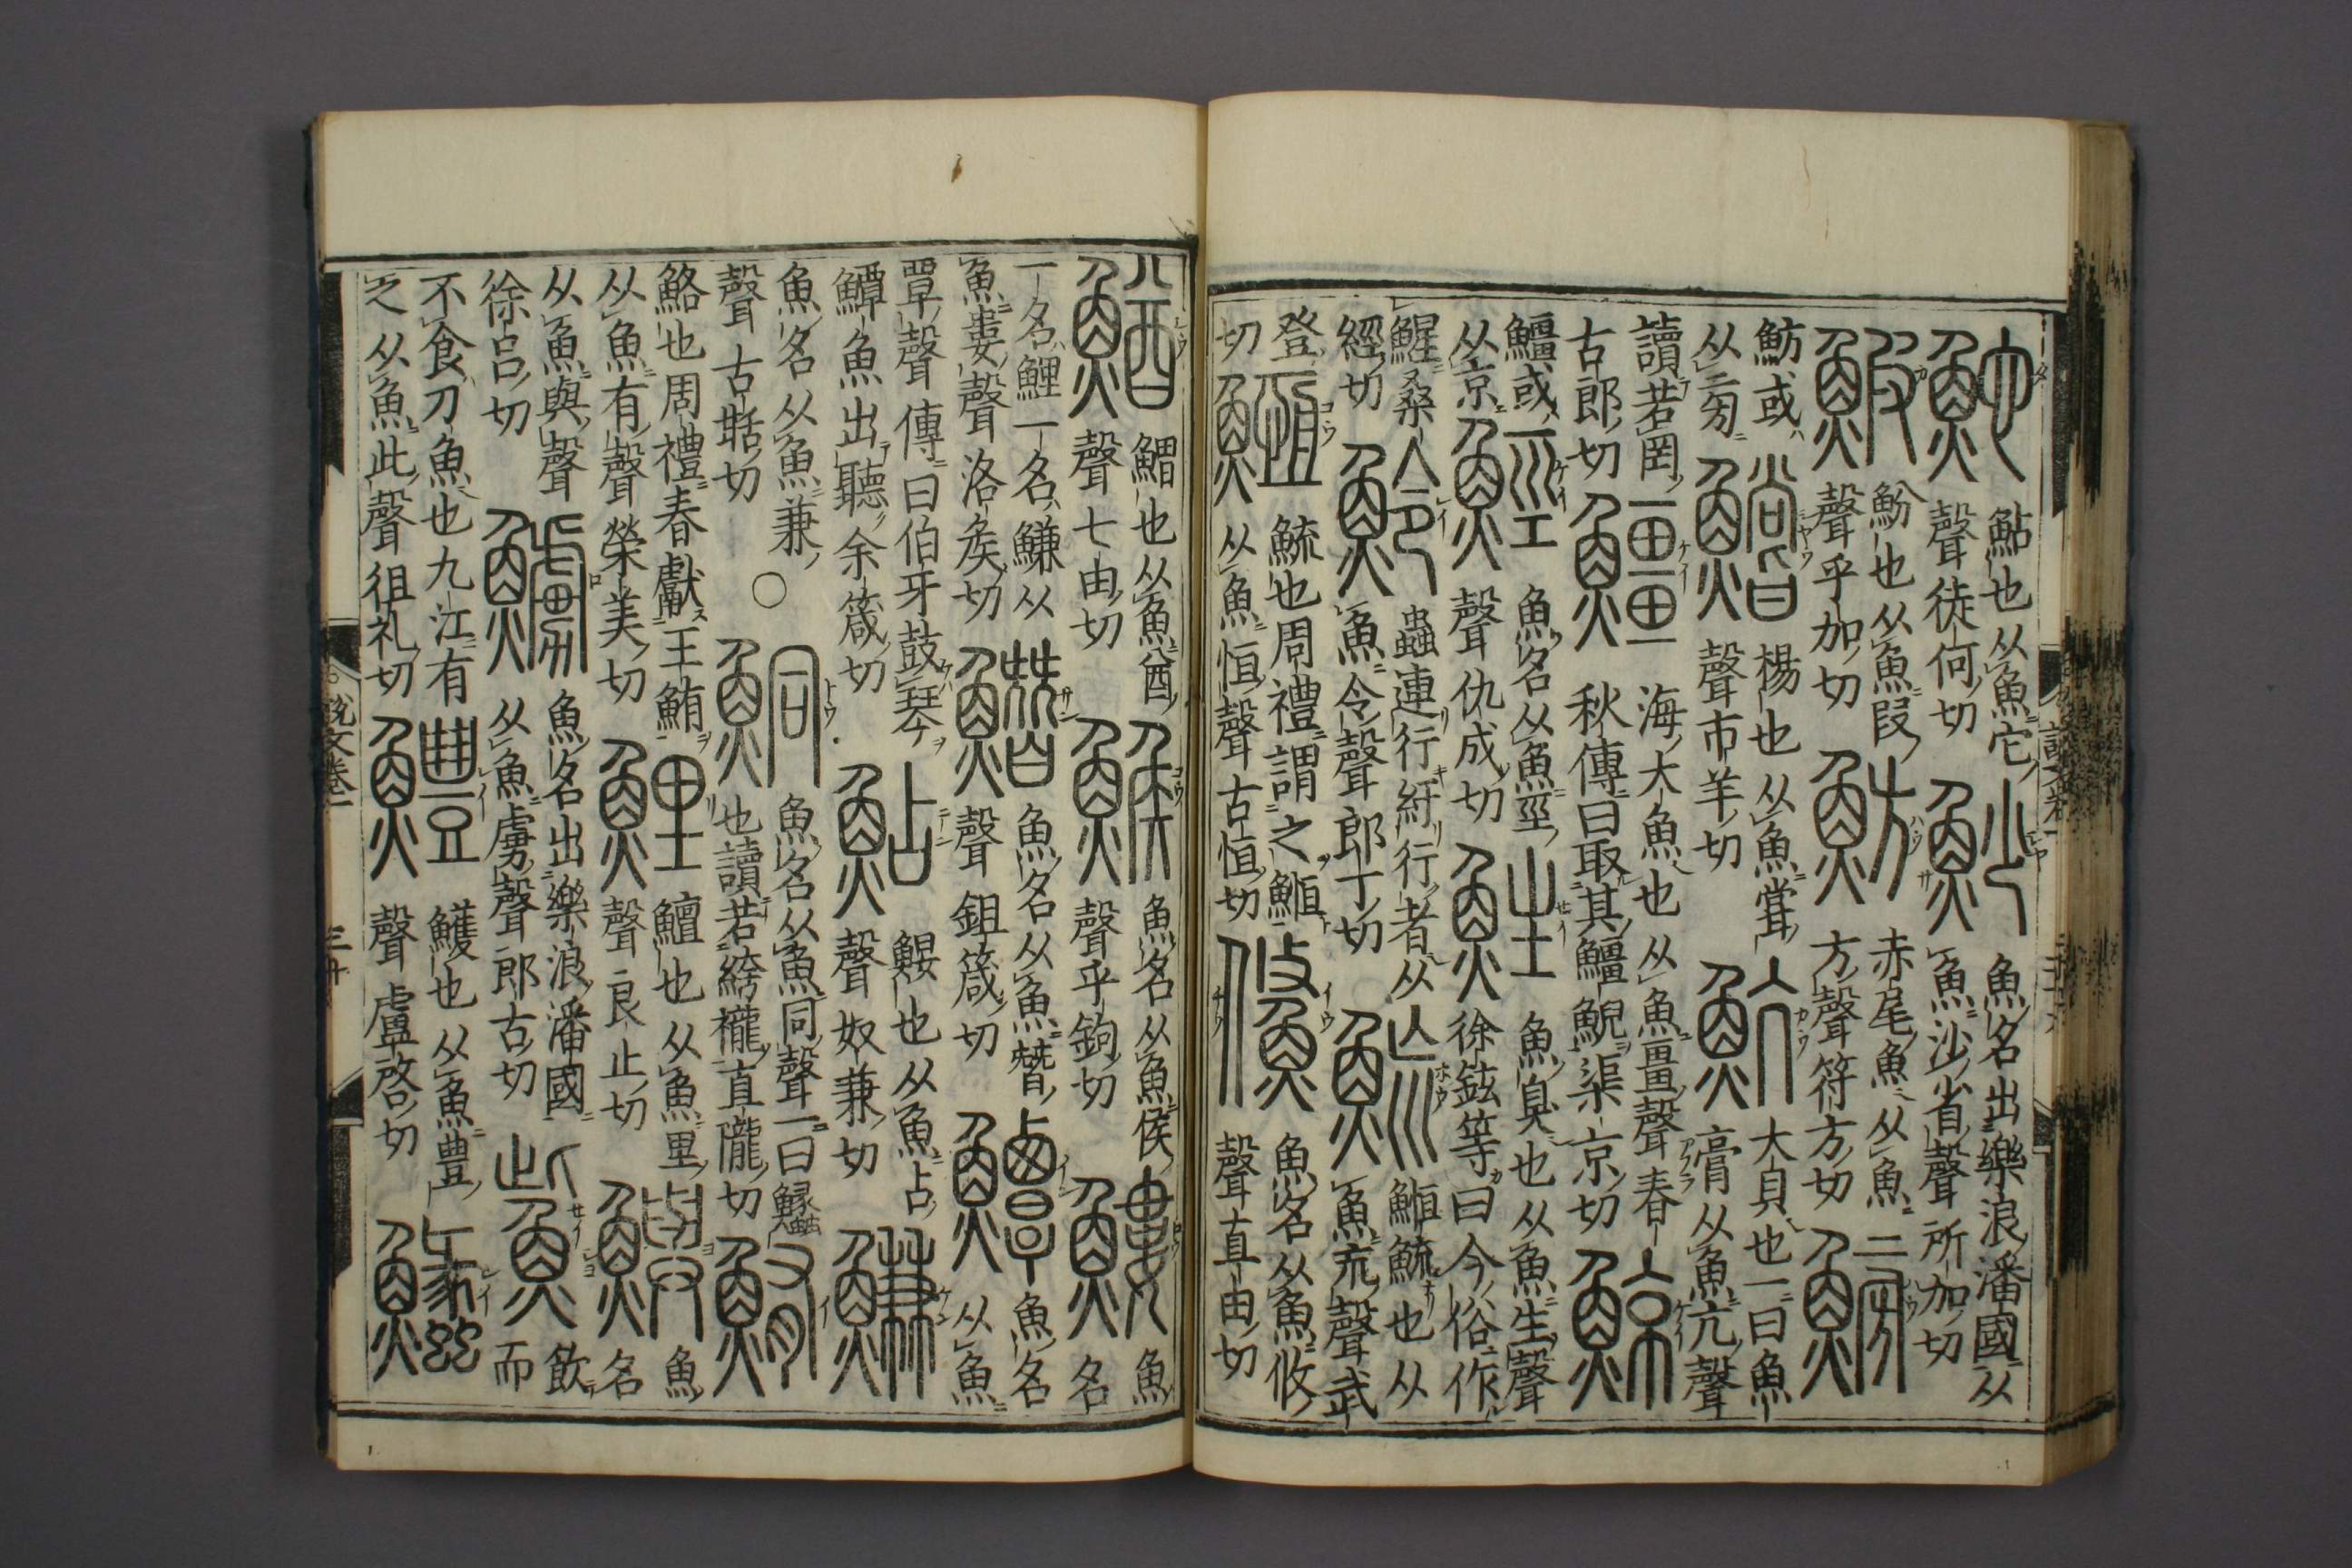 鮀 鮎也从魚它聲徒何切 魦 魚名出樂浪潘國从魚沙省聲所加切
鰕 魵也从魚叚聲乎加切 魴 赤尾魚从魚方聲符方切 鰟
魴或从旁 鱨 楊也从魚嘗聲市羊切 魧 大貝也一曰魚膏从魚亢聲
讀若岡古郎切 䲔 海大魚也从魚畺聲春秋傳曰取其䲔鯢渠京切 鯨
䲔或从京 䱓 魚名从魚巠聲仇成切 鮏 魚臭也从魚生聲徐鉉等曰今俗作
鯹桑經切 魿 蟲連行紆行者从魚令聲郎丁切 𩷶 䱭𩷶也从魚巟聲武
登切 䱭 𩷶也周禮謂之䱭从魚恒聲古恒切 鯈 魚名从魚攸聲直由切
鰌 鰼也从魚酋聲七由切 鯸 魚名从魚侯聲乎鉤切 䱾 魚名
一名鯉一名鰜从魚婁聲洛矦切 䲋 魚名从魚朁聲鉏箴切 鱏 魚名从魚
覃聲傳曰伯牙鼓琴鱏魚出聽余箴切 鮎 鰋也从魚占聲奴兼切 鰜
魚名从魚兼聲古甛切 ○ 鮦 魚名从魚同聲一曰鱶也讀若絝襱直隴切 鮪
鮥也周禮春獻王鮪从魚有聲榮美切 鯉 鱣也从魚里聲良止切 鱮 魚名
从魚與聲徐呂切 䲐 魚名出樂浪潘國从魚虜聲郎古切 鮆 飲而
不食刀魚也九江有之从魚此聲徂礼切 鱧 鱯也从魚豊聲盧啓切
說文卷一
三十